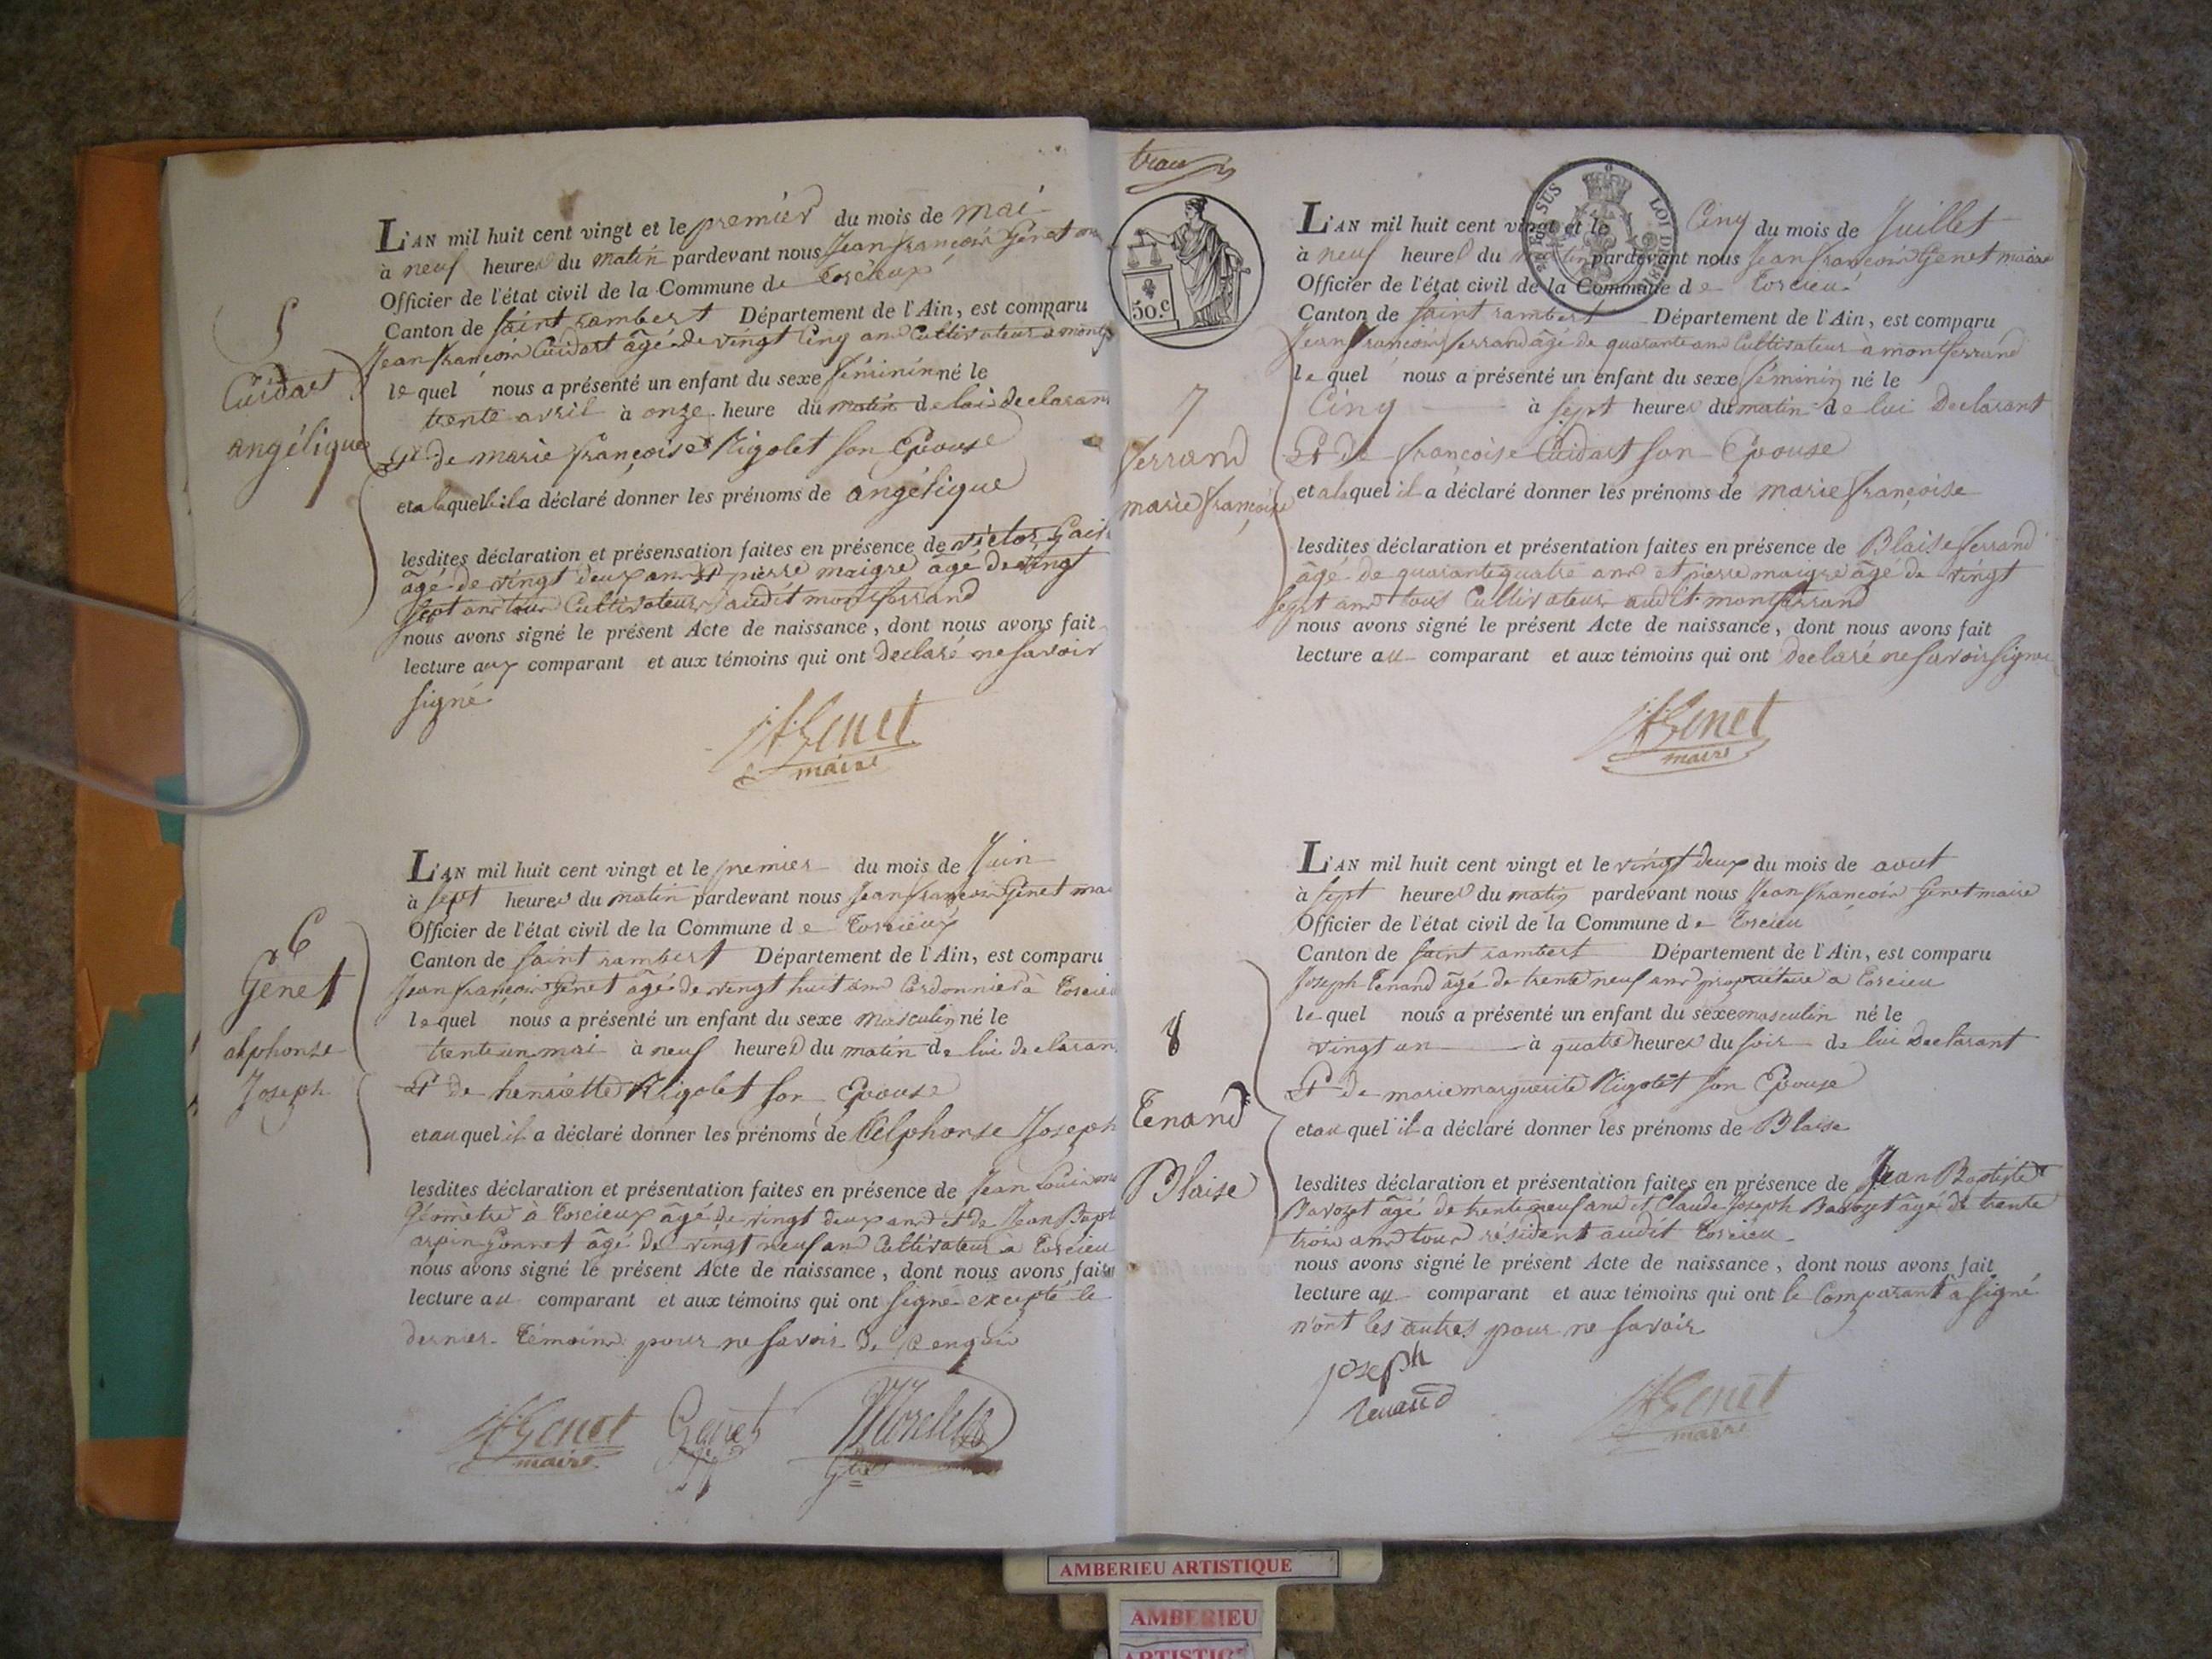 5
Cuidart
angélique
L'AN mil huit cent vingt et le premier du mois de mai
à neuf heures du matin pardevant nous Jean françois Génet
Officier de l'état civil de la Commune de Torcieux
Canton de saint rambert Département de l'Ain, est comparu
Jean françois Cuidart âgé de vingt Cinq ans Cultivateur a
le quel nous a présenté un enfant du sexe féminin né le
trente avril à onze heure du matin de lui declarant
Et de marie françoise Rigolet son Epouse
et a laquelle il a déclaré donner les prénoms de angélique
lesdites déclaration et présensation faites en présence de victor
âgé de vingt deux ans Et pierre maigre âgé de vingt
sept ans tous Cultivateurs audit montferrand
nous avons signé le présent Acte de naissance, dont nous avons fait
lecture aux comparant et aux témoins qui ont declaré ne savoir
signé
Genet
maire
6
Génet
alphonse
Joseph
L'AN mil huit cent vingt et le premier du mois de Juin
à sept heures du matin pardevant nous Jean françois Génet
Officier de l'état civil de la Commune de Torcieux
Canton de saint rambert Département de l'Ain, est comparu
Jean françois Génet âgé de vingt huit ans Cordonnier à
le quel nous a présenté un enfant du sexe masculin né le
trente un mai à neuf heures du matin de lui declaran
Et de henriette Rigolet son Epouse
et au quel il a déclaré donner les prénoms de Alphonse Joseph
lesdites déclaration et présentation faites en présence de Jean Louis
Géomètre à Torcieux âgé de vingt deux ans et de Jean Bapt
arpin Gonnet âgé de vingt neuf ans Cultivateur a Torcieu
nous avons signé le présent Acte de naissance, dont nous avons fait
lecture au comparant et aux témoins qui ont signé excepté le
dernier témoin pour ne savoir de Ce enquis
Genet
maire
Genet
L'AN mil huit cent vingt et le Cinq du mois de Juillet
à neuf heures du matin pardevant nous Jean françois Genet maire
Officier de l'état civil de la Commune de Torcieu
Canton de saint rambert Département de l'Ain, est comparu
Jean françois ferrand âgé de quarante ans Cultivateur à montferrand
le quel nous a présenté un enfant du sexe féminin né le
Cinq à sept heures du matin de lui Declarant
Et De françoise Cuidart son Epouse
et a la quel il a déclaré donner les prénoms de marie françoise
lesdites déclaration et présentation faites en présence de Blaise ferrand
âgé de quarante quatre ans et pierre maigre âgé de vingt
sept ans tous Cultivateur audit montferrand
nous avons signé le présent Acte de naissance, dont nous avons fait
lecture au comparant et aux témoins qui ont declaré ne savoir signer
Genet
maire
50.c
SUS
LOI DE
7
ferrand
marie françoise
L'AN mil huit cent vingt et le vingt deux du mois de aout
à sept heures du matin pardevant nous Jean françois Génet maire
Officier de l'état civil de la Commune de Torcieu
Canton de saint rambert Département de l'Ain, est comparu
Joseph Tenand âgé de trente neuf ans propriétaire a Torcieu
le quel nous a présenté un enfant du sexe masculin né le
vingt un à quatre heures du soir de lui Declarant
Et de marie marguerite Rigolet son Epouse
et au quel il a déclaré donner les prénoms de Blaise
lesdites déclaration et présentation faites en présence de Jean Baptiste
Bavozet âgé de trente neuf ans et Claude Joseph Bavozet âgé de trente
trois ans tous résident audit Torcieu
nous avons signé le présent Acte de naissance, dont nous avons fait
lecture au comparant et aux témoins qui ont le Comparant a signé
n'ont les autres pour ne savoir
joseph
tenand
Genet
maire
8
Tenand
Blaise
AMBERIEU ARTISTIQUE
AMBERIEU
ARTISTIQ